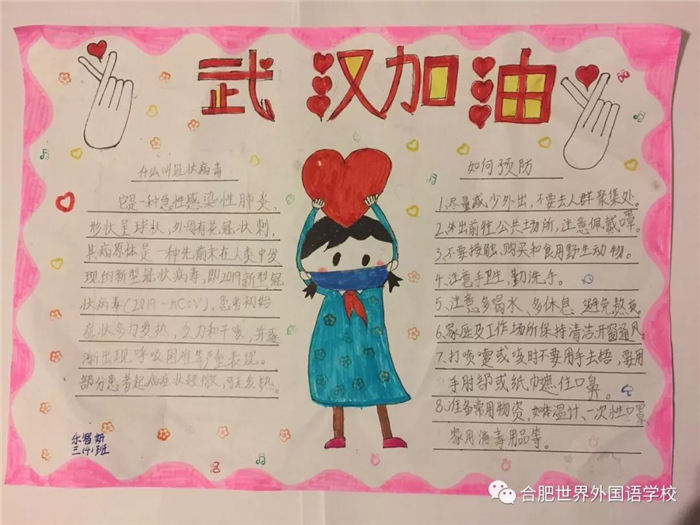 武汉加油
什么叫冠状病毒
它是一种急性感染性肺炎,
形状呈球状,外周有花冠状刺,
其病原体是一种先前未在人类中发
现的新型冠状病毒,即2019新型冠
状病毒(2019-nCoV),患者初始
症状多为发热,乏力和干咳,并逐
渐出现呼吸困难等严重表现。
部分患者起病症状轻微,可无发热。
乐
三(4)班
如何预防
1.尽量减少外出,不要去人群聚集处。
2.外出前往公共场所,注意佩戴口罩。
3.不要接触、购买和食用野生动物。
4.注意手卫生,勤洗手。
5.注意多喝水、多休息、避免熬夜。
6.家庭及工作场所保持清洁开窗通风。
7.打喷嚏或咳时不要用手去捂,要用
手肘部或纸巾遮住口鼻。
8.准备常用物资,如体温计、一次性口罩、
家用消毒用品等。
合肥世界外国语学校